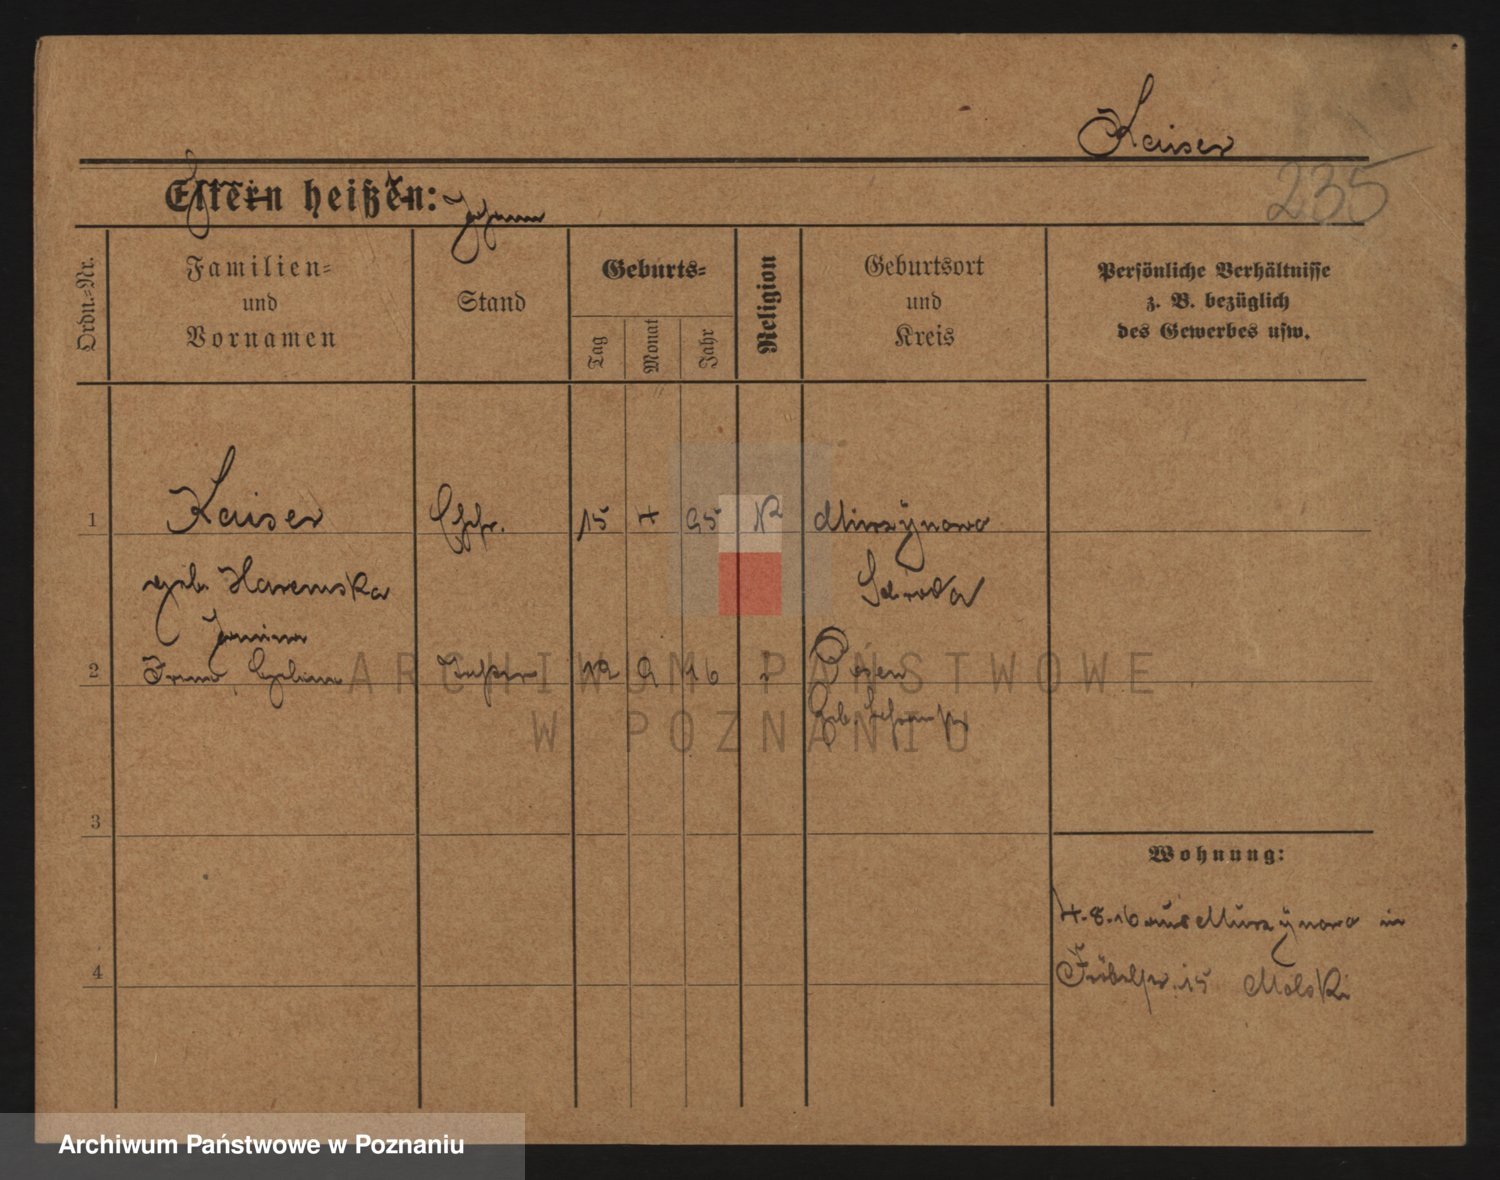 Kaiser
235
Eltern heißen: Johann
Ordn.-Nr.
Familien-
und
Vornamen
Stand
Geburts-
Tag
Monat
Jahr
Religion
Geburtsort
und
Kreis
Persönliche Verhältnisse
z. B. bezüglich
des Gewerbes usw.
1 Kaiser Ehfr. 15 4 95 K Murzynowo
geb. Haremska Schroda
Janina
2 12 9 16 Posen
3
4
Wohnung:
4.8.16 aus Murzynowo in
15 Molski
ARCHIWUM PAŃSTWOWE
W POZNANIU
Archiwum Państwowe w Poznaniu